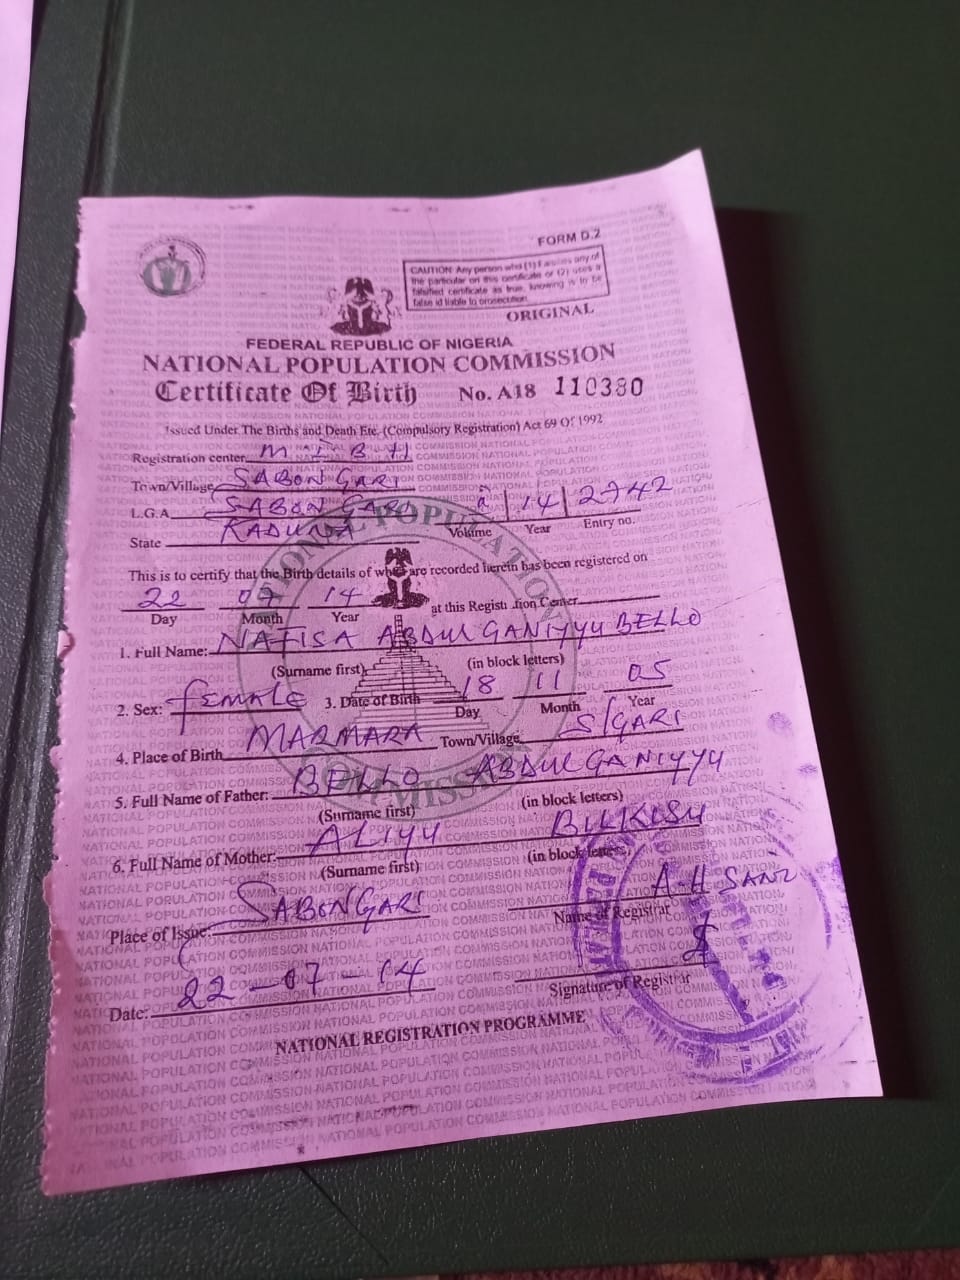 FORM D.2
CAUTION: Any person who (1) Falsifies any of
the particular on this certificate or (2) uses a
falsified certificate as true, knowing it to be
false id liable to prosecution
ORIGINAL
FEDERAL REPUBLIC OF NIGERIA
NATIONAL POPULATION COMMISSION
Certificate Of Birth No. A18 110380
Issued Under The Births and Death Etc. (Compulsory Registration) Act 69 Of 1992
Registration center
Town/Village SABON GARI
L.G.A SABON GARI 14 2742
State KADUNA Volume Year Entry no.
This is to certify that the Birth details of who are recorded herein has been registered on
22 07 14 at this Registration Center
Day Month Year
1. Full Name: NAFISA ABDUL GANIYYU BELLO
(Surname first) (in block letters)
2. Sex: female 3. Date of Birth 18 11 05
Day Month Year
4. Place of Birth MARMARA Town/Village S/GARI
5. Full Name of Father: BELLO ABDUL GANIYYU
(Surname first) (in block letters)
6. Full Name of Mother: ALIYU BILKISU
(Surname first) (in block letters)
A-H SANI
Place of Issue: SABON GARI Name of Registrar
Date: 22-07-14 Signature of Registrar
NATIONAL REGISTRATION PROGRAMME
NATIONAL POPULATION COMMISSION